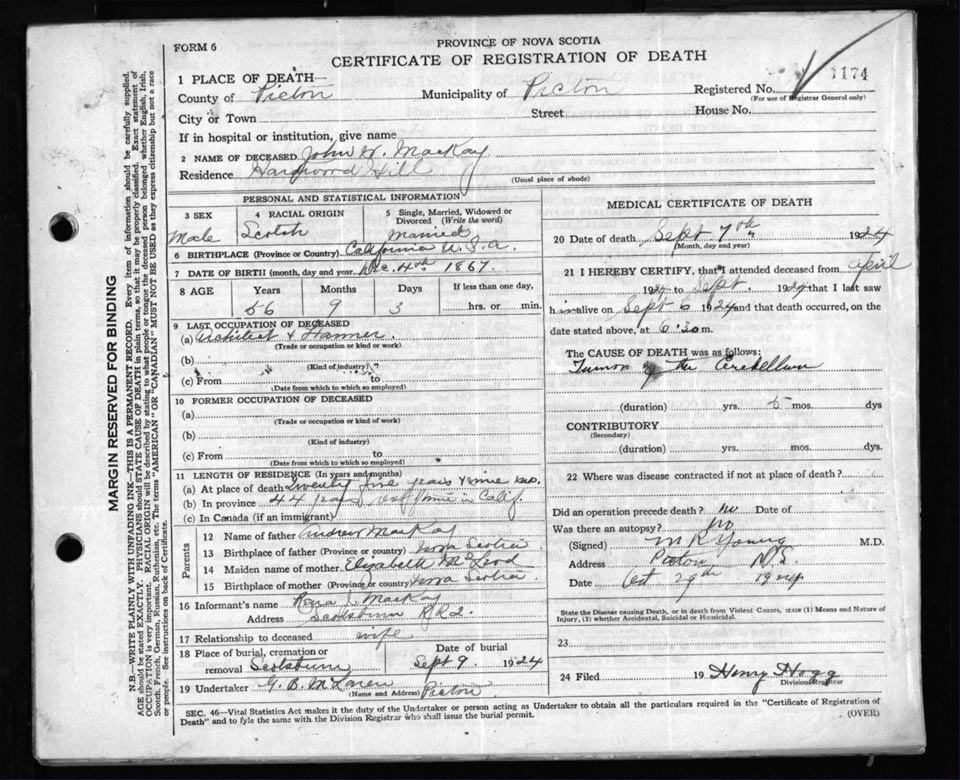 FORM 6
PROVINCE OF NOVA SCOTIA
CERTIFICATE OF REGISTRATION OF DEATH
1174
1 PLACE OF DEATH—
County of Pictou Municipality of Pictou Registered No.
(For use of Registrar General only)
City or Town Street House No.
If in hospital or institution, give name
2 NAME OF DECEASED John W. MacKay
Residence Hardwood Hill
(Usual place of abode)
PERSONAL AND STATISTICAL INFORMATION
3 SEX 4 RACIAL ORIGIN 5 Single, Married, Widowed or Divorced (Write the word)
Male Scotch Married
6 BIRTHPLACE (Province or Country) California U.S.A.
7 DATE OF BIRTH (month, day and year) Dec. 4th 1867.
8 AGE Years Months Days If less than one day,
56 9 3 hrs. or min.
9 LAST OCCUPATION OF DECEASED
(a) Architect & Farmer.
(Trade or occupation or kind or work)
(b)
(Kind of industry)
(c) From to
(Date from which to which so employed)
10 FORMER OCCUPATION OF DECEASED
(a)
(Trade or occupation or kind of work)
(b)
(Kind of industry)
(c) From to
(Date from which to which so employed)
11 LENGTH OF RESIDENCE (In years and months)
(a) At place of death Twenty five years & nine mo.
(b) In province 44 years in Calif.
(c) In Canada (if an immigrant)
Parents
12 Name of father Andrew MacKay
13 Birthplace of father (Province or country) Nova Scotia
14 Maiden name of mother Elizabeth McLeod
15 Birthplace of mother (Province or country) Nova Scotia
16 Informant's name MacKay
Address Scotsburn R.R.2.
17 Relationship to deceased wife
18 Place of burial, cremation or removal Scotsburn Date of burial Sept 9. 1924
19 Undertaker G. B. McLaren Pictou
(Name and Address)
MEDICAL CERTIFICATE OF DEATH
20 Date of death Sept 7th 1924
(Month, day and year)
21 I HEREBY CERTIFY, that I attended deceased from April
1924 to Sept. 1924 that I last saw
him alive on Sept 6 1924 and that death occurred, on
date stated above, at 6:30 m.
The CAUSE OF DEATH was as follows:
Tumor of the Cerebellum
(duration) yrs. 5 mos. dys
CONTRIBUTORY
(Secondary)
(duration) yrs. mos. dys
22 Where was disease contracted if not at place of death?
Did an operation precede death? no Date of
Was there an autopsy? no
(Signed) M R Young M.D.
Address Pictou N.S.
Date Oct 29th 1924
State the Disease causing Death, or in death from Violent Causes, state (1) Means and Nature of
Injury, (2) whether Accidental, Suicidal or Homicidal.
23
24 Filed 19 Henry Hogg
Division Registrar
SEC. 46—Vital Statistics Act makes it the duty of the Undertaker or person acting as Undertaker to obtain all the particulars required in the "Certificate of Registration of
Death" and to fyle the same with the Division Registrar who shall issue the burial permit.
(OVER)
MARGIN RESERVED FOR BINDING
N.B.—WRITE PLAINLY WITH UNFADING INK—THIS IS A PERMANENT RECORD. Every item of information should be carefully supplied.
AGE should be stated EXACTLY. PHYSICIANS should STATE CAUSE OF DEATH in plain terms, so that it may be properly classified. Exact statement of
OCCUPATION is very important. RACIAL ORIGIN will be described by stating to what people or tongue the deceased person belonged whether English, Irish,
Scotch, French, German, Russian, Ruthenian, etc. The terms "AMERICAN" OR "CANADIAN" MUST NOT BE USED as they express citizenship but not a race
or people. See instructions on back of Certificate.